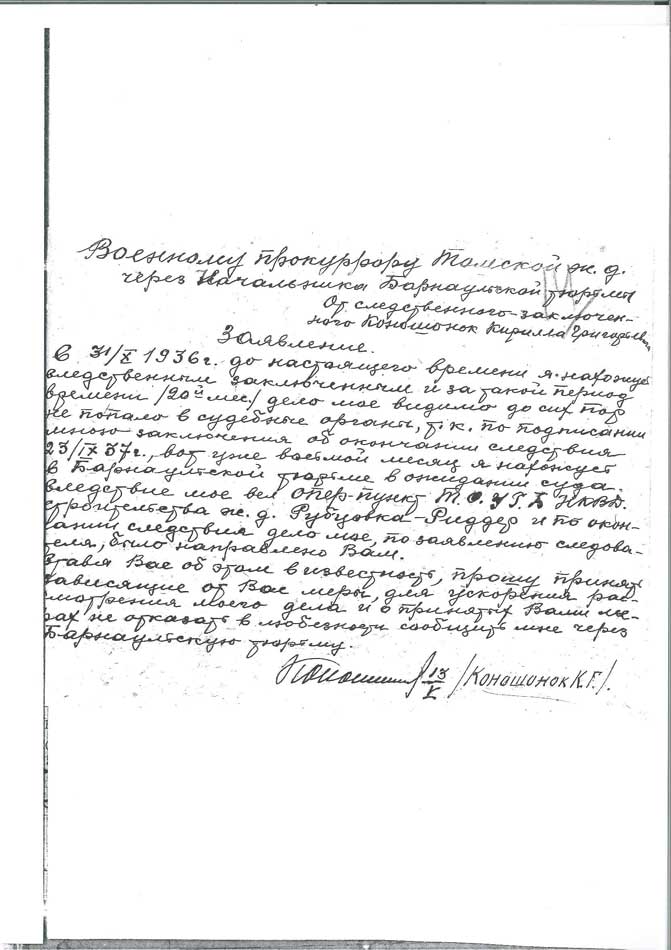 Военному прокуррору Томской ж. д.
через Начальника Барнаульской тюрьмы
От следственного-заключен-
ного Коношонок Кирилла Григорьевича
Заявление.
С 31/X 1936 г. до настоящего времени я нахожусь
следственным заключенным и за такой период
времени /20й мес./ дело мое видимо до сих пор
не попало в судебные органы, т. к. по подписании
мною заключения об окончании следствия
23/IX 37 г., вот уже восьмой месяц я нахожусь
в Барнаульской тюрьме в ожидании суда.
Следствие мое вел опер-пункт Т. О. У Г. Б НКВД.
строительства ж. д. Рубцовка-Риддер и по окон-
чании следствия дело мое, по заявлению следова-
теля, было направлено Вам.
Ставя Вас об этом в известность, прошу принять
зависящие от Вас меры, для ускорения рас-
смотрения моего дела и о принятых Вами ме-
рах не отказать в любезности сообщить мне через
Барнаульскую тюрьму.
13/V /Коношонок К. Г./.